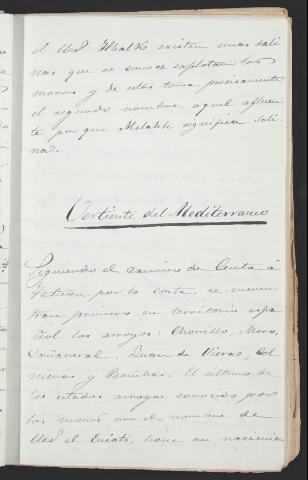 el Uad Hhalk existen unas sali
nas que se conoce explotan los
moros y de estas toma precisamente
el segundo nombre aquel afluen
te por que Melahh significa Sali
na.
Vertiente del Mediterraneo
Siguiendo el camino de Ceuta á
Tetuan por la costa, se encuen
tran primero en territorio espa
ñol los arroyos: Chorrillo, Moro,
Cañaveral, Juan de Vieras, Col
menas y Bombas. El último de
los citados arroyos conocido por
los moros con el nombre de
Uad el tiene su nacimien